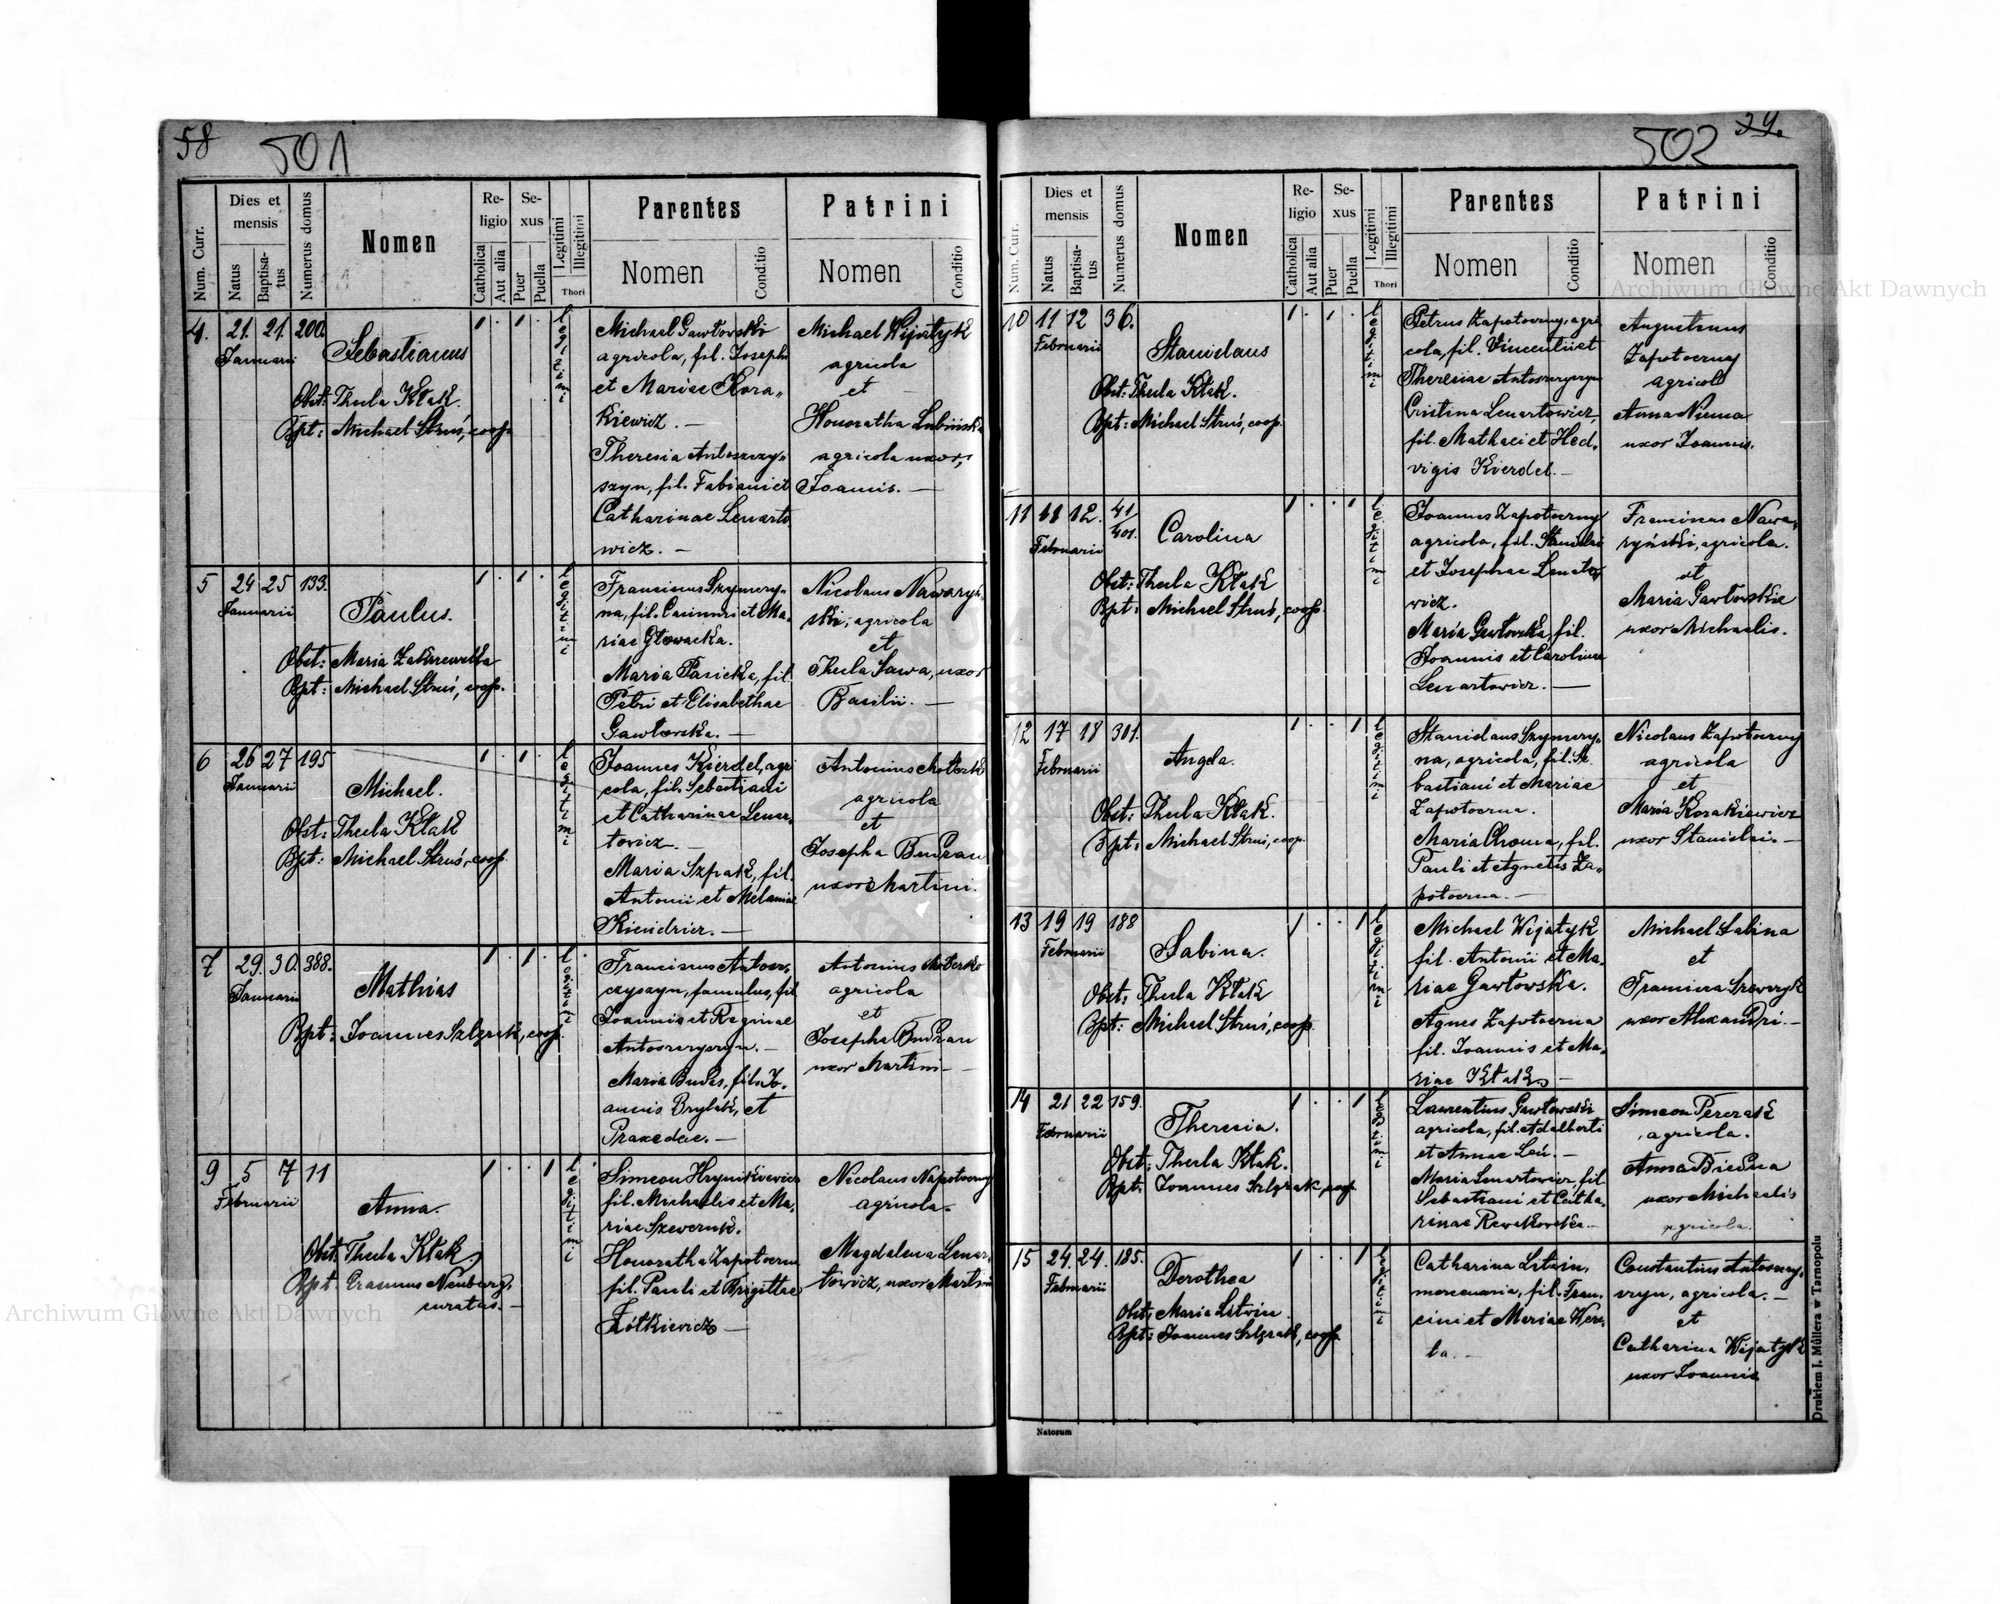 58
501
Num. Curr.
Dies et mensis
Natus
Baptisa-tus
Numerus domus
Nomen
Re-ligio
Catholica
Aut alia
Se-xus
Puer
Puella
Legitimi
Illegitimi
Thori
Parentes
Nomen
Conditio
Patrini
Nomen
Conditio
4. 21. 21. 200.
Januarii
Sebastianus
Obst: Thecla Kłak.
Bpt: Michael Struś, coop.
1 . 1 .
legitimi
Michael Gawłowski
agricola, fil. Josephi
et Mariae Kora-
kiewicz. —
Theresia Antoszczy-
szyn, fil. Fabiani et
Catharinae Lenarto
wicz. —
Michael Wijatyk
agricola
et
Honoratha Labińska
agricola uxor,
Joannis. —
5 24 25 133.
Januarii
Paulus.
Obst: Maria Zakrzewska
Bpt: Michael Struś, coop.
1 . 1 .
legitimi
Franciscus Szymczy-
na, fil. Casimiri et Ma-
riae Głowacka.
Maria Pasicka, fil.
Petri et Elisabethae
Gawłowska. —
Nicolaus Nawaryń-
ski, agricola
et
Thecla Sawa, uxor
Basilii. —
6 26 27 195
Januarii
Michael.
Obst: Thecla Kłak
Bpt: Michael Struś, coop.
1 . 1 .
legitimi
Joannes Kierdel, agri
cola, fil. Sebastiani
et Catharinae Lenar-
towicz. —
Maria Szpak, fil.
Antonii et Melaniae
Kiendzier. —
Antonius
agricola
et
Josepha Budzan
uxor Martini.
7 29. 30. 388.
Januarii
Mathias
Bpt: Joannes Szlęzak, coop.
1 . 1 .
legitimi
Franciscus Antosz-
czyszyn, famulus, fil
Joannis et Reginae
Antoszczyszyn. —
Maria Budes, fil. Jo-
annis Brylak, et
Praxedae. —
Antonius
agricola
et
Josepha Budzan
uxor Martini —
9 5 7 11
Februarii
Anna.
Obst: Thecla Kłak
Bpt. Erasmus Neuburg,
curatus. —
1 . . 1
legitimi
Simeon Hrynikiewicz
fil. Michaelis et Ma-
riae Szewczuk.
Honoratha Zapotoczna
fil. Pauli et Brigittae
Żółkiewicz —
Nicolaus Napotoczny
agricola.
Magdalena Lenar-
towicz, uxor Martini
502
29.
Num. Curr.
Dies et mensis
Natus
Baptisa-tus
Numerus domus
Nomen
Re-ligio
Catholica
Aut alia
Se-xus
Puer
Puella
Legitimi
Illegitimi
Thori
Parentes
Nomen
Conditio
Patrini
Nomen
Conditio
10 11 12 36.
Februarii
Stanislaus
Obst: Thecla Kłak.
Bpt: Michael Struś, coop.
1 . 1 .
legitimi
Petrus Zapotoczny, agri
cola, fil. Vincentii et
Theresiae Antoszczyszyn
Cristina Lenartowicz,
fil. Mathaei et Hed-
vigis Kierdel. —
Augustinus
Zapotoczny
agricola
Anna Niema
uxor Joannis.
11 11 12. 41/401.
Februarii
Carolina
Obst: Thecla Kłak
Bpt: Michael Struś, coop.
1 . . 1
legitimi
Joannes Zapotoczny
agricola, fil. Stanislai
et Josephae Lenarto
wicz.
Maria Gawłowska, fil.
Joannis et Carolinae
Lenartowicz. —
Franciscus Nawa-
ryński, agricola.
et
Maria Gawłowskie
uxor Michaelis.
12 17 18 301.
Februarii
Angda.
Obst: Thecla Kłak.
Bpt: Michael Struś, coop.
1 . . 1
legitimi
Stanislaus Szymczy-
na, agricola, fil. Se-
bastiani et Mariae
Zapotoczna.
Maria Choma, fil.
Pauli et Agnetis Za-
potoczna. —
Nicolaus Zapotoczny
agricola
et
Maria Korakiewicz
uxor Stanislai. —
13 19 19 188
Februarii
Sabina.
Obst: Thecla Kłak
Bpt: Michael Struś, coop.
1 . . 1
legitimi
Michael Wijatyk
fil. Antonii et Ma-
riae Gawłowska.
Agnes Zapotoczna
fil. Joannis et Ma-
riae Kłak —
Michael Labina
et
Francisca Szewczyk
uxor Alexandri. —
14 21 22 159.
Februarii
Theresia.
Obst: Thecla Kłak.
Bpt. Joannes Szlęzak, coop.
1 . . 1
legitimi
Laurentius Gawłowski
agricola, fil. Adalberti
et Annae Leń. —
Maria Lenartowicz, fil.
Sebastiani et Catha-
rinae Rewakowska. —
Simeon Perczak
agricola.
Anna Biedna
uxor Michaelis
agricola.
15 24. 24. 185.
Februarii
Dorothea
Obst: Maria Litwin
Bpt: Joannes Szlęzak, coop.
1 . . 1
legitimi
Catharina Litwin,
mercenaria, fil. Fran-
cisci et Mariae Were-
ta. —
Constantius Antoszczy-
szyn, agricola. —
et
Catharina Wijatyk
uxor Joannis
Natorum
Drukiem J. Müllera w Tarnopolu
Archiwum Główne Akt Dawnych
Archiwum Główne Akt Dawnych